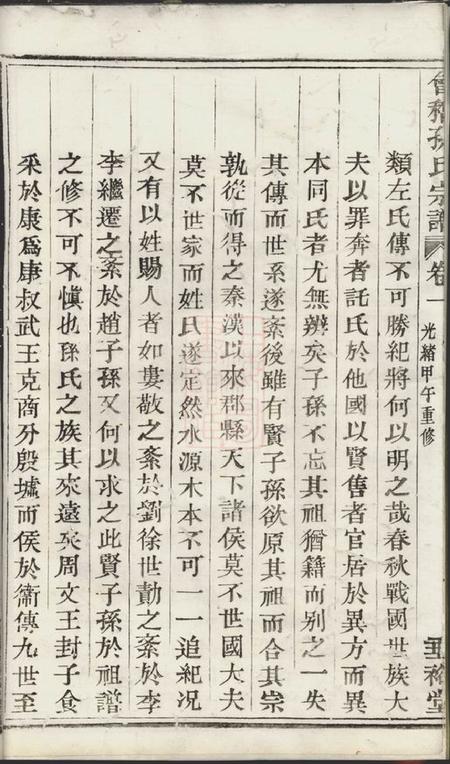 會稽孫氏宗譜 卷一 光緒甲午重修
類左氏傳不可勝紀將何以明之哉春秋戰國世族大
夫以罪奔者託氏於他國以賢售者官居於異方而異
本同氏者尤無辨矣子孫不忘其祖猶籍而別之一失
其傳而世系遂紊後雖有賢子孫欲原其祖而合其宗
孰從而得之秦漢以來郡縣天下諸侯莫不世國大夫
莫不世家而姓氏遂定然水源木本不可一一追紀况
又有以姓賜人者如婁敬之紊於劉徐世勣之紊於李
李繼遷之紊於趙子孫又何以求之此賢子孫於祖譜
之修不可不愼也孫氏之族其來遠矣周文王封子食
釆於康爲康叔武王克商分殷墟而侯於衞傳九世至